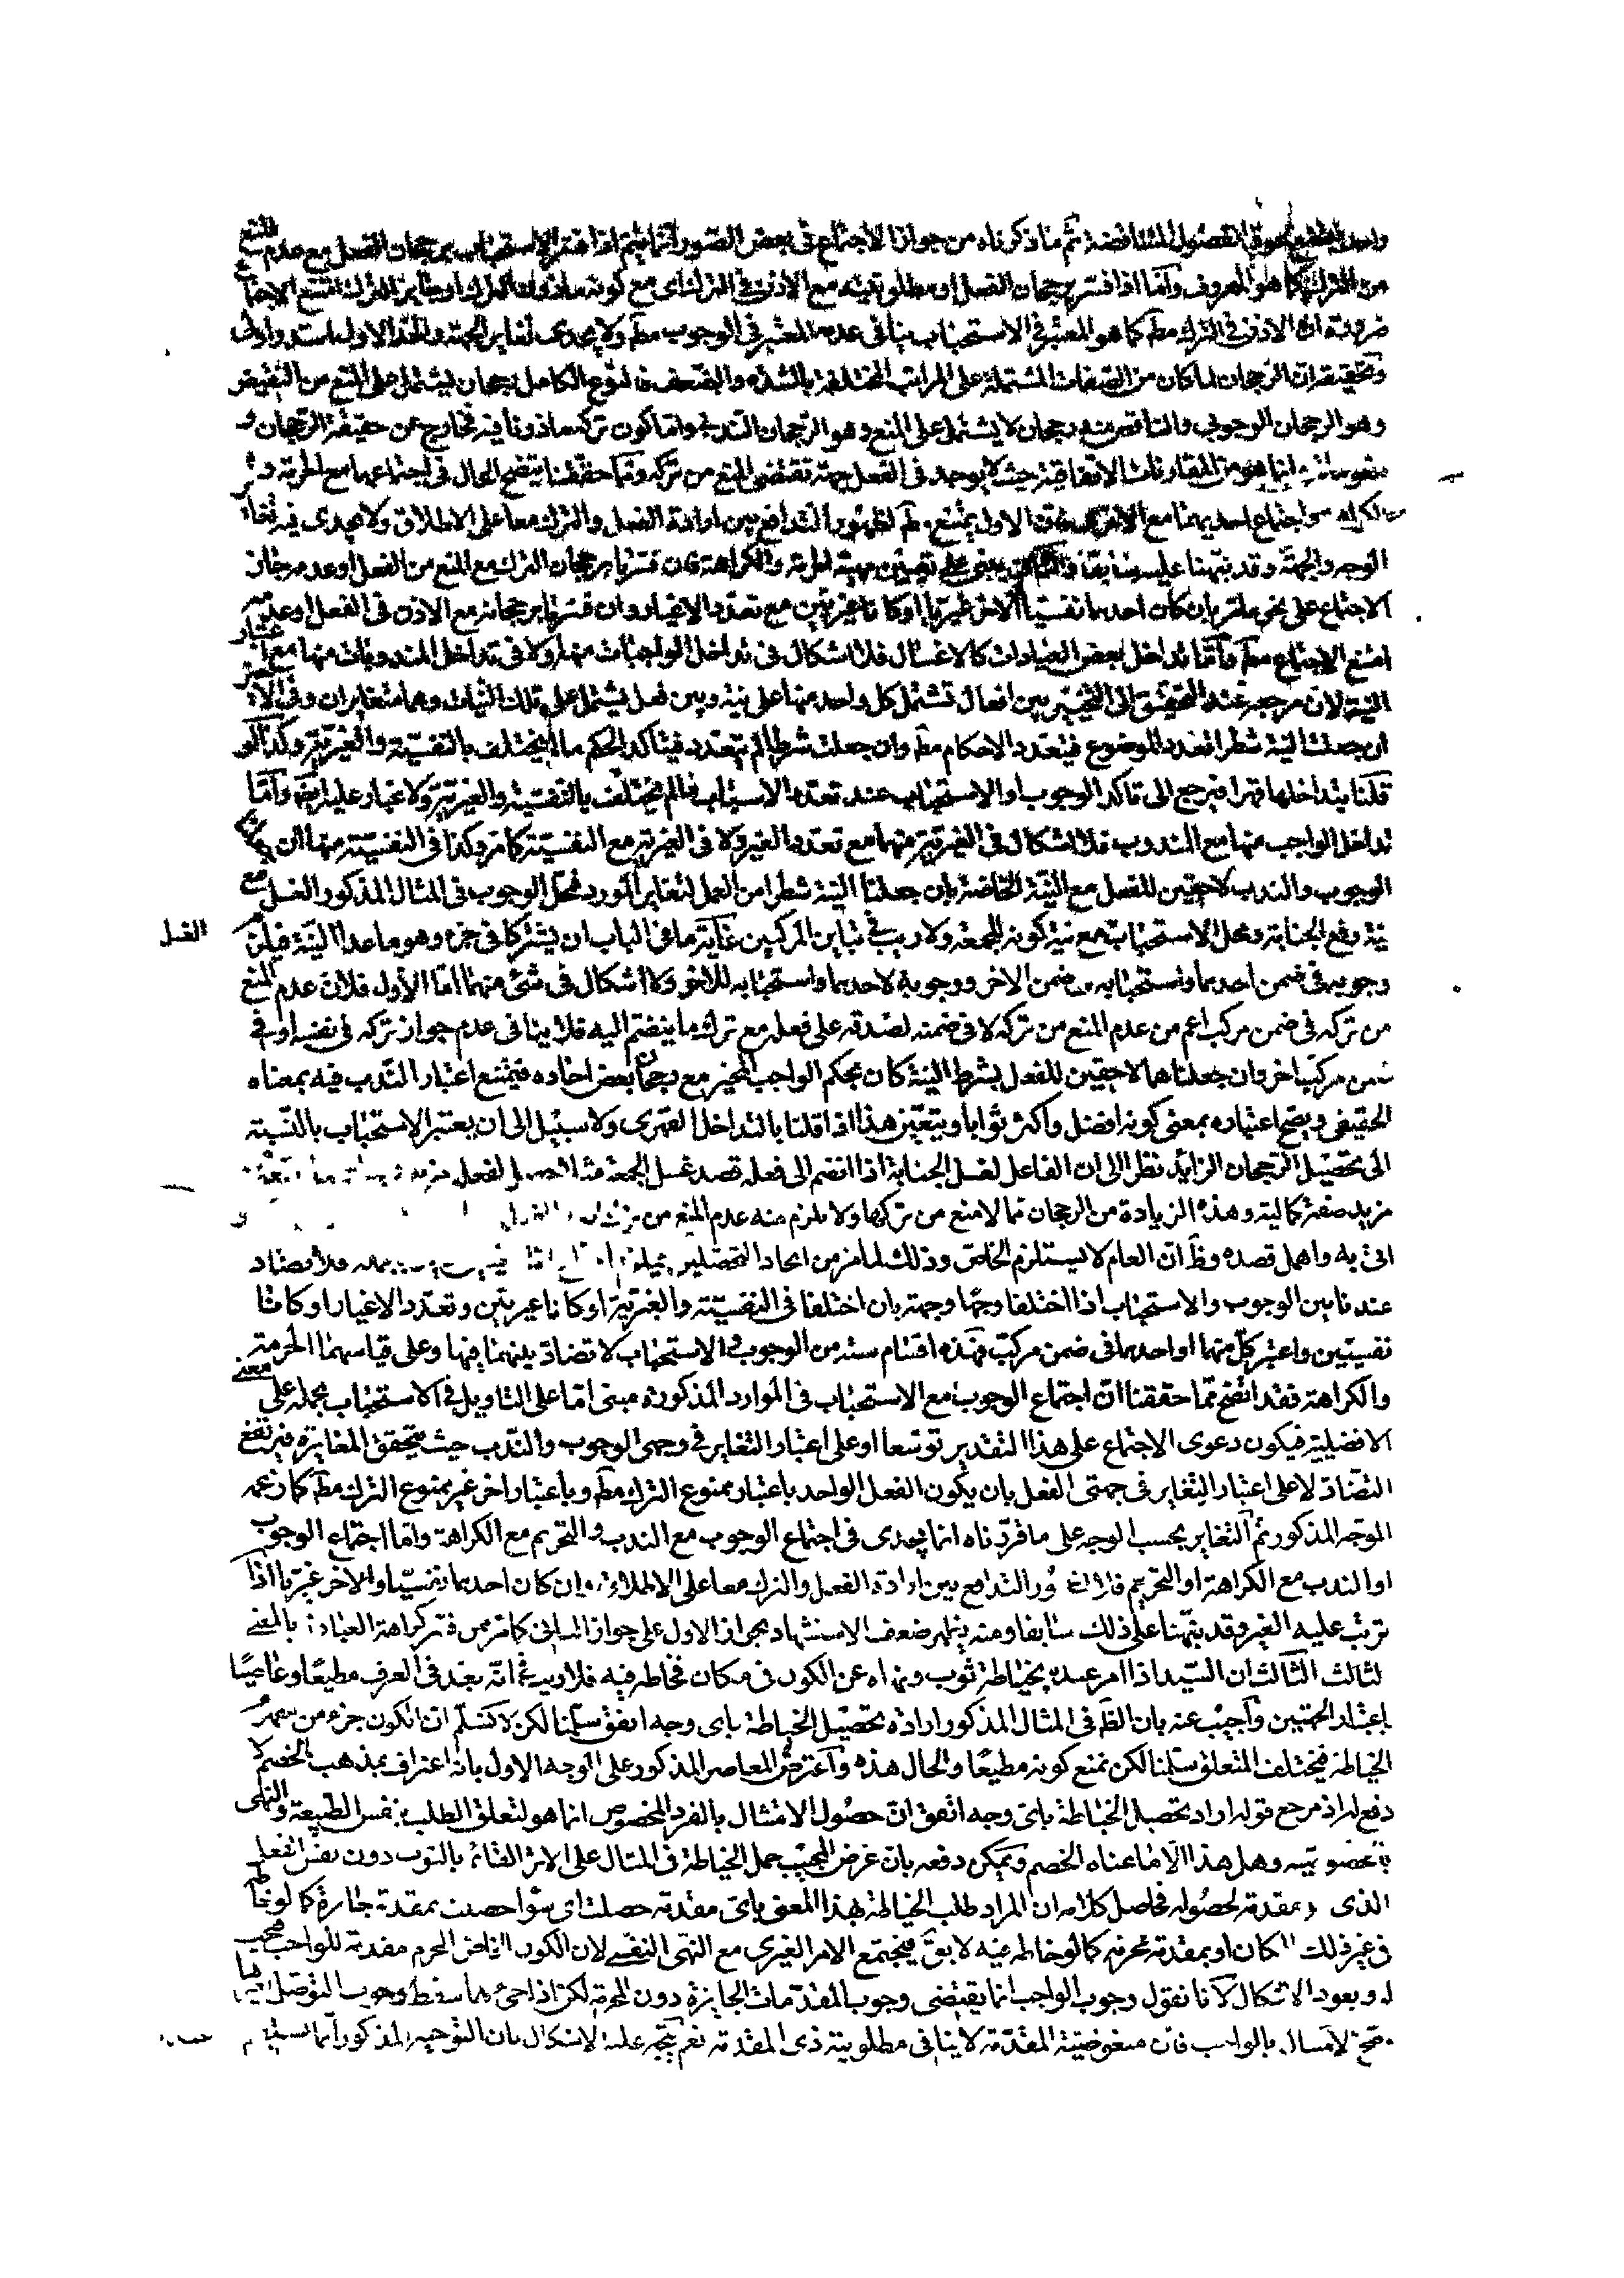 ثم ما ذكرناه من جواز الاجتماع في بعض الصور انما يتم اذا فسر الاستحباب برجحان الفعل مع عدم المنع
من الترك كما هو المعروف واما اذا فسر برجحان الفعل او مطلوبيته مع الاذن في الترك اى مع كونه ماذون الترك او جايز الترك امتنع الاجتماع
ضرورة ان الاذن في الترك مطم كما هو المعتبر في الاستحباب ينافى عدمه المعتبر في الوجوب مطم ولا يجدى تغاير الجهة والحد الاول اسد واولى
وتحقيقه ان الرجحان لما كان من الصفات المشتملة على المراتب المختلفة بالشدة والضعف فالنوع الكامل رجحان يشتمل على المنع من النقيض
وهو الرجحان الوجوبي والناقص منه رجحان لا يشتمل على المنع وهو الرجحان الندبى واما كون تركه ماذونا فيه فخارج عن حقيقة الرجحان و
انما هو من المقارنات الاتفاقية حيث لا يوجد في الفعل جهة تقتضى المنع من تركه ومما حققنا يتضح الحال في اجتماعهما مع الحرمة و
الكراهة واجتماع احديهما مع الاخرى الاول يمتنع مطم لظهور التدافع بين ارادة الفعل والترك معا على الاطلاق ولا يجدى فيه تغاير
الوجه والجهة وقد نبهنا عليه سابقا والثانى يبنى على تعيين مهية الحرمة والكراهة فان فسرتا برجحان الترك مع المنع من الفعل او عدمه جاز
الاجتماع على نحو ما مر بان كان احدهما نفسيا والاخر غيريا او كانا غيريين مع تعدد الاغيار وان فسرتا برجحانه مع الاذن في الفعل او عدمه
امتنع الاجتماع مطم واما تداخل بعض العبادات كالاغسال فلا اشكال في تداخل الواجبات منها ولا في تداخل المندوبات منها مع اعتبار
النية لان مرجعه عند التحقيق الى التخيير بين افعال تشتمل كل واحد منها على نية وبين فعل يشتمل على تلك النيات وهما متغايران وفي الاخير
ان جعلت النية شطرا تعدد الموضوع فيتعدد الاحكام مطم وان جعلت شرطا لم يتعدد فيتاكد الحكم ما لم يختلف بالنفسية والغيرية وكذا لو
قلنا بتداخلها قهرا فيرجع الى تاكد الوجوب او الاستحباب عند تعدد الاسباب ما لم يختلف بالنفسية والغيرية ولا غبار عليه ايضا واما
تداخل الواجب منها مع المندوب فلا اشكال في الغيرية منهما مع تعدد الغير ولا في الغيرية مع النفسية كما مر وكذا في النفسية منهما ان كان
الوجوب والندب لاحقين للفعل مع النية الخاصة بان جعلنا النية شطرا من العمل لتغاير المورد فمحل الوجوب في المثال المذكور الغسل مع
نية رفع الجنابة ومحل الاستحباب مع نية كونه للجمعة ولا ريب في تباين المركبين غاية ما في الباب ان يشتركا في جزء وهو ما عدا النية فيلزم
الغسل
وجوبه في ضمن احدهما واستحبابه في ضمن الاخر ووجوبه لاحدهما واستحبابه للاخر ولا اشكال في شئ منهما اما الاول فلان عدم المنع
من تركه في ضمن مركب اعم من عدم المنع من تركه لا في ضمنه لصدقه على فعله مع ترك ما ينضم اليه فلا ينافى عدم جواز تركه في نفسه او في
ضمن مركب اخر وان جعلناهما لاحقين للفعل بشرط النية كان بحكم الواجب المخير مع رجحان بعض احاده فيمتنع اعتبار الندب فيه بمعناه
الحقيقى ويصح اعتباره بمعنى كونه افضل واكثر ثوابا ويتعين هذا اذا قلنا بالتداخل القهرى ولا سبيل الى ان يعتبر الاستحباب بالنسبة
الى تحصيل الرجحان الزايد نظرا الى ان الفاعل لغسل الجنابة اذا انضم الى فعله قصد غسل الجمعة مثلا حصل لفعله
مزيد صفة كمالية وهذه الزيادة من الرجحان مما لا منع من تركها ولا يلزم منه عدم المنع من
اتى به واهمل قصده وظ ان العام لا يستلزم الخاص وذلك لما مر من اتحاد التحصلين فلا تضاد
عندنا بين الوجوب والاستحباب اذا اختلفا وجها وجهة بان اختلفا في النفسية والغيرية او كانا غيريين وتعدد الاغيار او كانا
نفسيين واعتبر كل منهما او احدهما في ضمن مركب فهذه اقسام ستة من الوجوب والاستحباب لا تضاد بينهما فيها وعلى قياسهما الحرمة
والكراهة فقد اتضح مما حققنا ان اجتماع الوجوب مع الاستحباب في الموارد المذكورة مبنى اما على التاويل في الاستحباب بحمله على معنى
الافضلية فيكون دعوى الاجتماع على هذا التقدير توسعا او على اعتبار التغاير في وجهى الوجوب والندب حيث يتحقق المغايرة فيرتفع
التضاد لا على اعتبار التغاير في جهتى الفعل بان يكون الفعل الواحد باعتبار ممنوع الترك مطم وباعتبار اخر غير ممنوع الترك مطم كما زعمه
الموجه المذكور ثم التغاير بحسب الوجه على ما قررناه انما يجدى في اجتماع الوجوب مع الندب والتحريم مع الكراهة واما اجتماع الوجوب
او الندب مع الكراهة او التحريم فلا التدافع بين ارادة الفعل والترك معا على الاطلاق وان كان احدهما نفسيا والاخر غيريا اذا
ترتب عليه الغير وقد نبهنا على ذلك سابقا ومنه يظهر ضعف الاستشهاد بجواز الاول على جواز الثانى كما مر كراهة العبادة بالمعنى
لثالث الثالث ان السيد اذا امر عبده بخياطة ثوب ونهاه عن الكون في مكان فخاطه فيه فلا ريب في انه يعد في العرف مطيعا وعاصيا
باعتبار الجهتين واجيب عنه بان الظم في المثال المذكور ارادة تحصيل الخياطة باى وجه اتفق سلمنا لكن لا نسلم ان الكون جزء من مفهوم
الخياطة فيختلف المتعلق سلمنا لكن نمنع كونه مطيعا والحال هذه واعترض المعاصر المذكور على الوجه الاول بانه اعتراف بمذهب الخصم لا
دفع له اذ مرجع قوله اراد تحصيل الخياطة باى وجه اتفق ان حصول الامتثال بالفرد المخصوص انما هو لتعلق الطلب بنفس الطبيعة والنهى
بالخصوصية وهل هذا الا ما عناه الخصم ويمكن دفعه بان غرض المجيب حمل الخياطة في المثال على الاثر القائم بالثوب دون نفس الفعل
الذى مقدمة لحصوله فحاصل كلامه ان المراد طلب الخياطة بهذا المعنى باى مقدمة حصلت اى سواء حصلت بمقدمة جايزة كما لو خاطه
في غير ذلك المكان او بمقدمة محرمة كما لو خاطه فيه لا يق فيجتمع الامر الغيرى مع النهى النفسى لان الكون الخاص المحرم مقدمة للواجب فيجب
له ويعود الاشكال لانا نقول وجوب الواجب انما يقتضى وجوب المقدمات الجايزة دون المحرمة لكن اذا جئ بها سقط وجوب التوصل
الامتثال بالواجب فان مبغوضية المقدمة لا ينافى مطلوبية ذى المقدمة نعم يتجه عليه الاشكال بان التوجيه المذكور انما